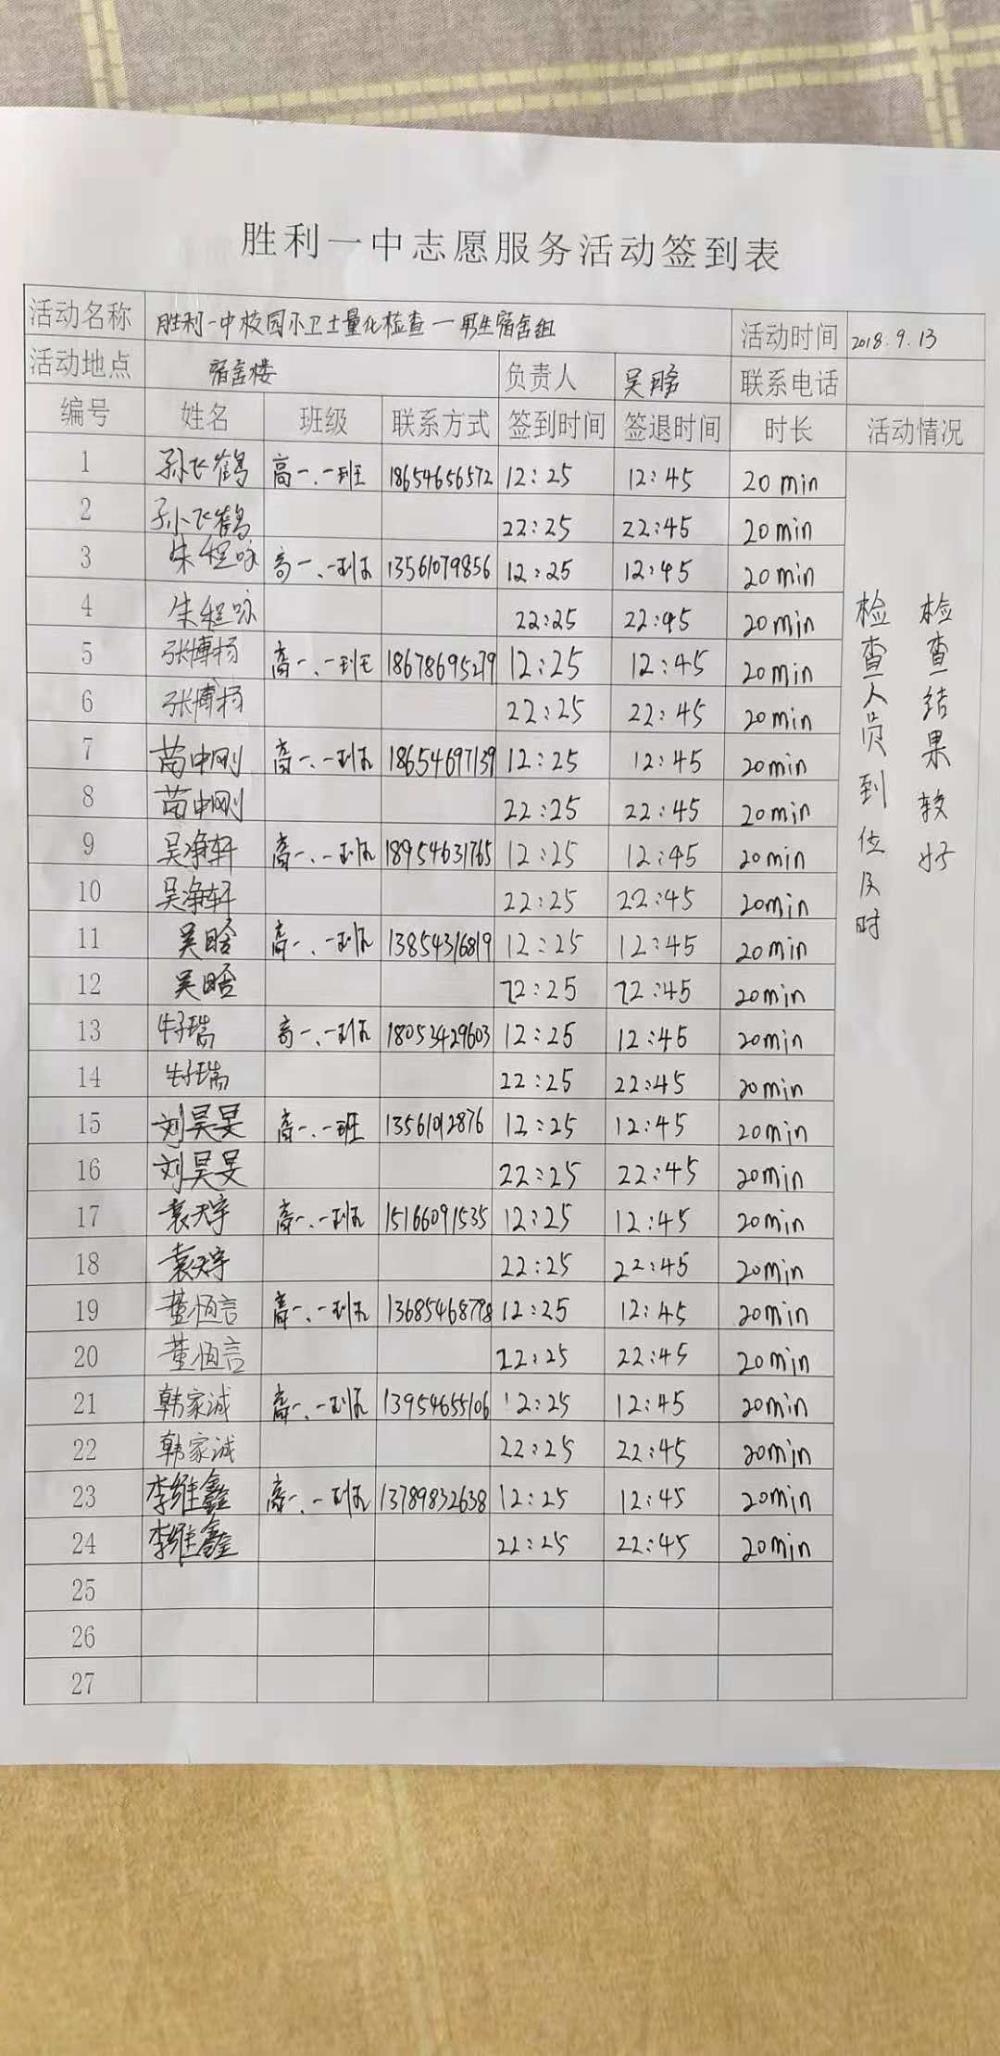 胜利一中志愿服务活动签到表
活动名称 胜利一中校园小卫士量化检查一男生宿舍组 活动时间 2018.9.13
活动地点 宿舍楼 负责人 吴晗 联系电话
编号 姓名 班级 联系方式 签到时间 签退时间 时长 活动情况
1 孙飞鹤 高一.一班 18654656572 12:25 12:45 20min
2 孙飞鹤 22:25 22:45 20min
3 朱程咏 高一.一班 13561079856 12:25 12:45 20min
4 朱程咏 22:25 22:45 20min
5 张博扬 高一.一班 18678695279 12:25 12:45 20min
6 张博扬 22:25 22:45 20min
7 苗中刚 高一.一班 18654697139 12:25 12:45 20min
8 苗中刚 22:25 22:45 20min
9 吴净轩 高一.一班 18954631765 12:25 12:45 20min
10 吴净轩 22:25 22:45 20min
11 吴晗 高一.一班 13854316819 12:25 12:45 20min
12 吴晗 22:25 22:45 20min
13 牛子瑞 高一.一班 18052429603 12:25 12:45 20min
14 牛子瑞 22:25 22:45 20min
15 刘昊旻 高一.一班 1356012876 12:25 12:45 20min
16 刘昊旻 22:25 22:45 20min
17 袁天宇 高一.一班 15166091535 12:25 12:45 20min
18 袁天宇 22:25 22:45 20min
19 董恒言 高一.一班 13685468778 12:25 12:45 20min
20 董恒言 22:25 22:45 20min
21 韩家诚 高一.一班 13954655106 12:25 12:45 20min
22 韩家诚 22:25 22:45 20min
23 李维鑫 高一.一班 13789832638 12:25 12:45 20min
24 李维鑫 22:25 22:45 20min
25
26
27
检查人员到位及时
检查结果较好